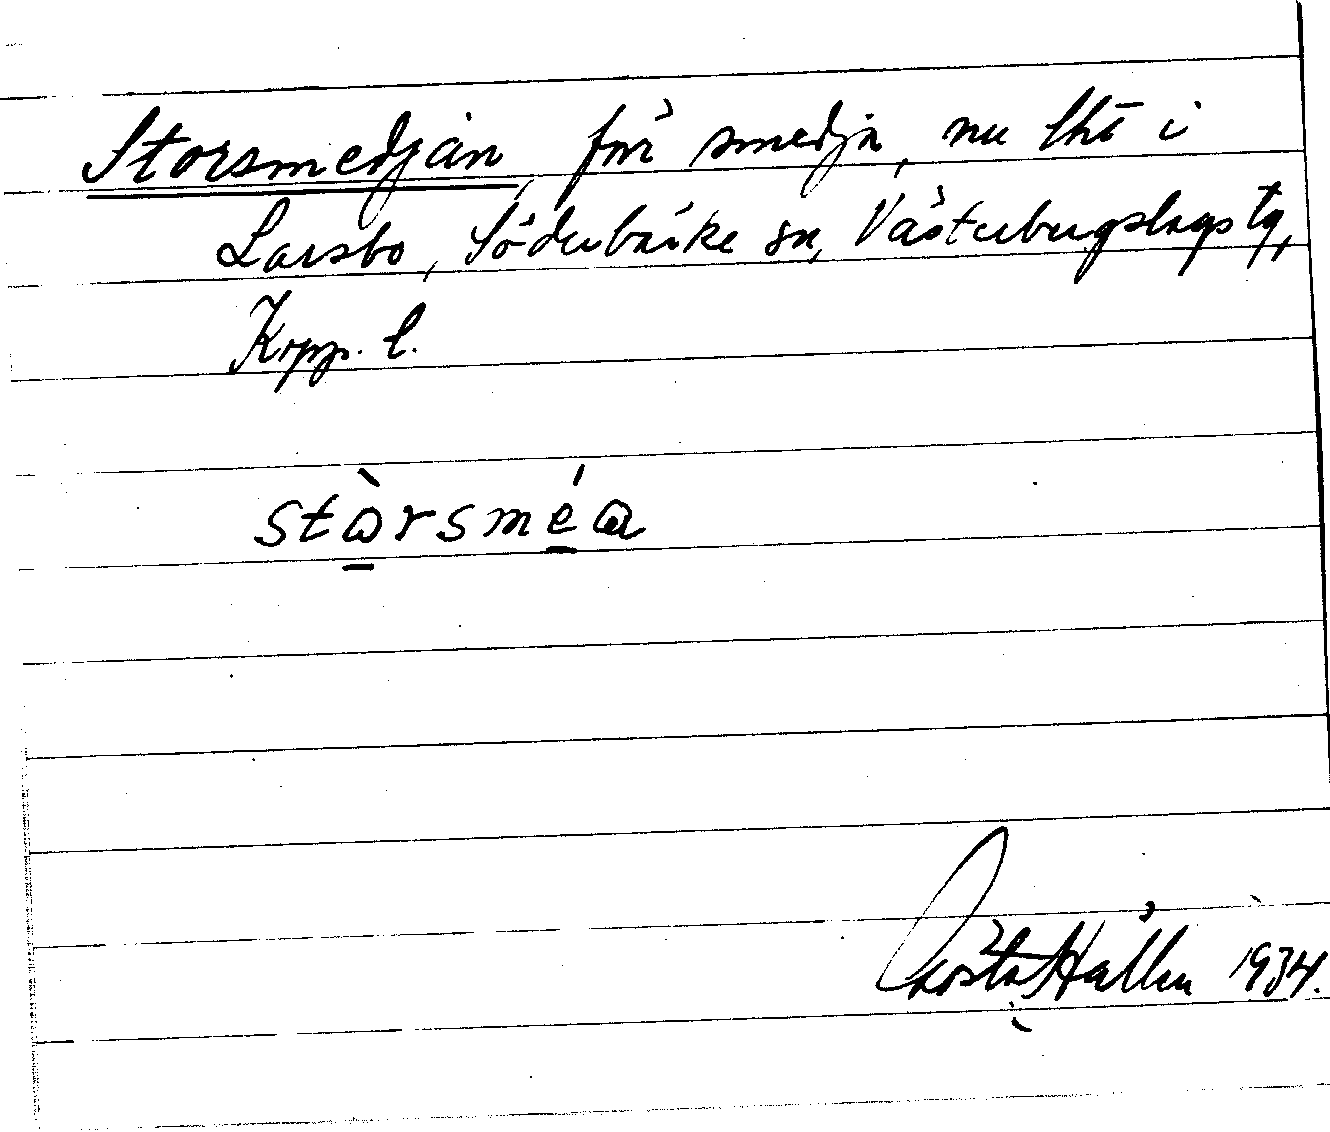 Storsmedjan, förr smedja, nu lht i
Larsbo, Söderbärke sn, Västerbergslags tg,
Kopp. l.
stὼrsméa
Gösta Hallén 1934.